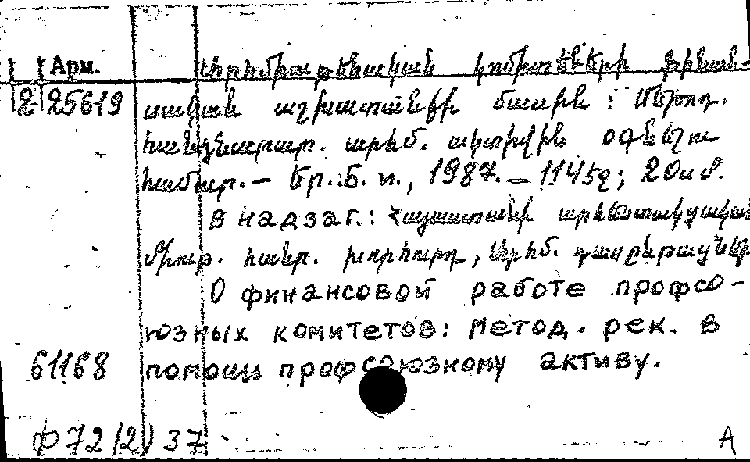 Арм. Արհմիութենական կոմիտեների ֆինան-
2 25619 սական աշխատանքի մասին : Մեթոդ.
հանձնարար. արհմ. ակտիվին օգնելու
համար. – Եր.: Б. и., 1987. – 114 էջ; 20 սմ.
В надзаг.: Հայաստանի արհեստակցական
միութ. հանր. խորհուրդ, Արհմ. դասընթացներ
О финансовой работе профсо-
юзных комитетов: Метод. рек. в
61168 помощь профсоюзному активу.
Ф 72 (2) 37 А